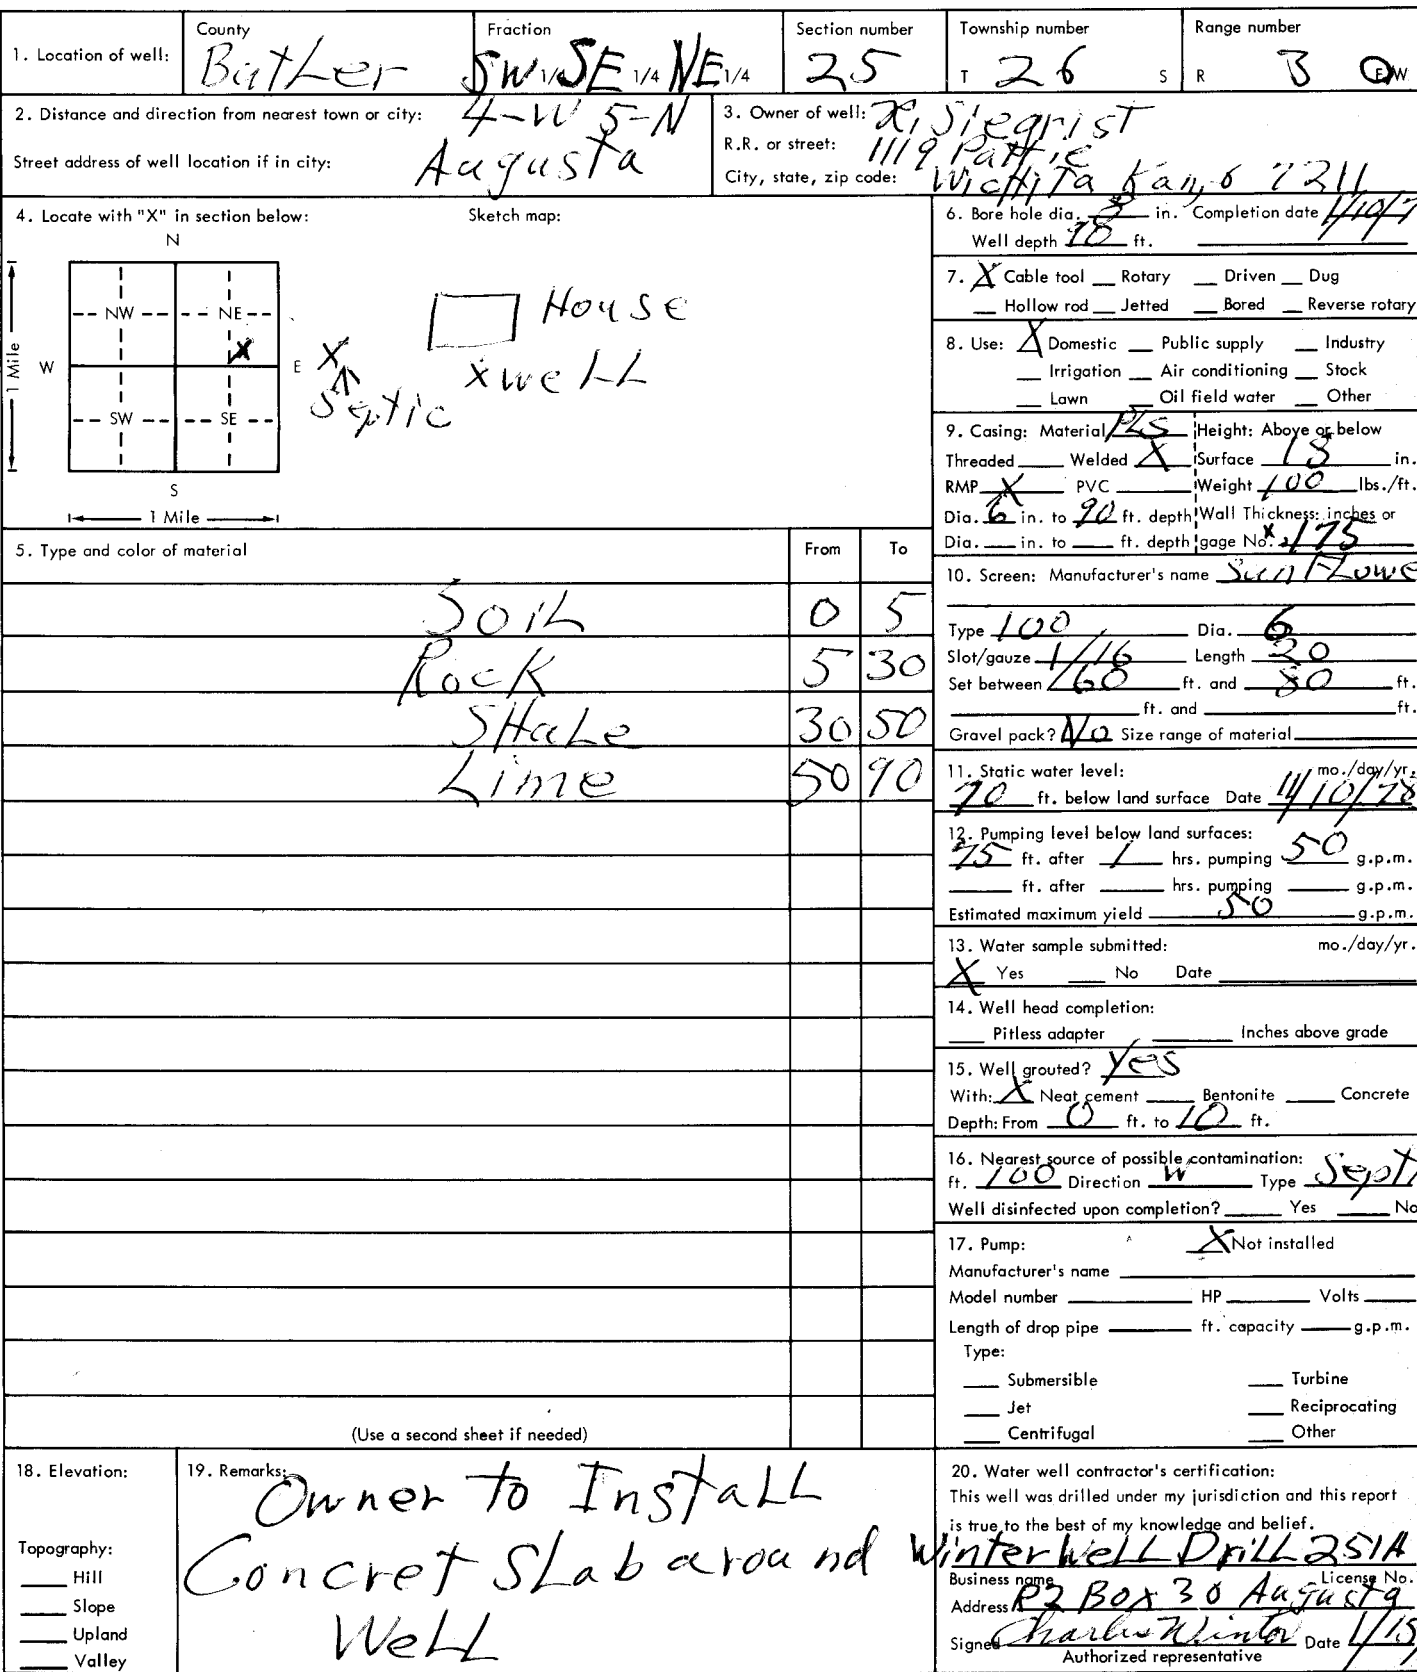 County Fraction Section number Township number Range number
1. Location of well: Butler SW 1/4 SE 1/4 NE 1/4 25 T 26 S R 3 E W
2. Distance and direction from nearest town or city: 4-W 5-N
Street address of well location if in city: Augusta
3. Owner of well: Siegrist
R.R. or street: 1119 Pattie
City, state, zip code: Wichita Kan, 67211
4. Locate with "X" in section below: Sketch map:
N
NW NE
W E
SW SE
S
1 Mile
1 Mile
X
X
Septic
House
x well
5. Type and color of material From To
Soil 0 5
Rock 5 30
Shale 30 50
Lime 50 90
(Use a second sheet if needed)
6. Bore hole dia. in. Completion date
Well depth 90 ft.
7. X Cable tool Rotary Driven Dug
Hollow rod Jetted Bored Reverse rotary
8. Use: X Domestic Public supply Industry
Irrigation Air conditioning Stock
Lawn Oil field water Other
9. Casing: Material PLS Height: Above or below
Threaded Welded X Surface 18 in.
RMP X PVC Weight 100 lbs./ft.
Dia. 6 in. to 90 ft. depth Wall Thickness: inches or
Dia. in. to ft. depth gage No. 175
10. Screen: Manufacturer's name Sun Flowe
Type 100 Dia. 6
Slot/gauze 1/16 Length 20
Set between 60 ft. and 80 ft.
ft. and ft.
Gravel pack? No Size range of material
11. Static water level: mo./day/yr.
70 ft. below land surface Date 1/10/78
12. Pumping level below land surfaces:
75 ft. after 1 hrs. pumping 50 g.p.m.
ft. after hrs. pumping g.p.m.
Estimated maximum yield 50 g.p.m.
13. Water sample submitted: mo./day/yr.
X Yes No Date
14. Well head completion:
Pitless adapter Inches above grade
15. Well grouted? Yes
With: X Neat cement Bentonite Concrete
Depth: From 0 ft. to 10 ft.
16. Nearest source of possible contamination:
ft. 100 Direction W Type Septi
Well disinfected upon completion? Yes No
17. Pump: X Not installed
Manufacturer's name
Model number HP Volts
Length of drop pipe ft. capacity g.p.m.
Type:
Submersible Turbine
Jet Reciprocating
Centrifugal Other
18. Elevation:
Topography:
Hill
Slope
Upland
Valley
19. Remarks: Owner to Install
Concret Slab around
Well
20. Water well contractor's certification:
This well was drilled under my jurisdiction and this report
is true to the best of my knowledge and belief.
Winter Well Drill 251A
Business name License No.
Address R2 Box 30 Augusta
Signed Charles Winter Date 1/15/
Authorized representative